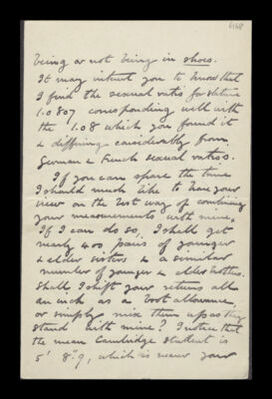 being or not being in shoes.
It may interest you to know that
I find the sexual ratio for stature
1.0807 corresponding well with
the 1.08 which you found it
& differing considerably from
German & French sexual ratios.
If you can spare the time
I should much like to have your
view on the best way of combining
your measurements with mine.
If I can do so, I shall get
nearly 400 pairs of younger
& elder sisters & a similar
number of younger & elder brothers.
Shall I shift your returns all
an inch as a boot allowance,
or simply mix them up as they
stand with mine? I notice that
the mean Cambridge student is
5' 8".9, which is near your